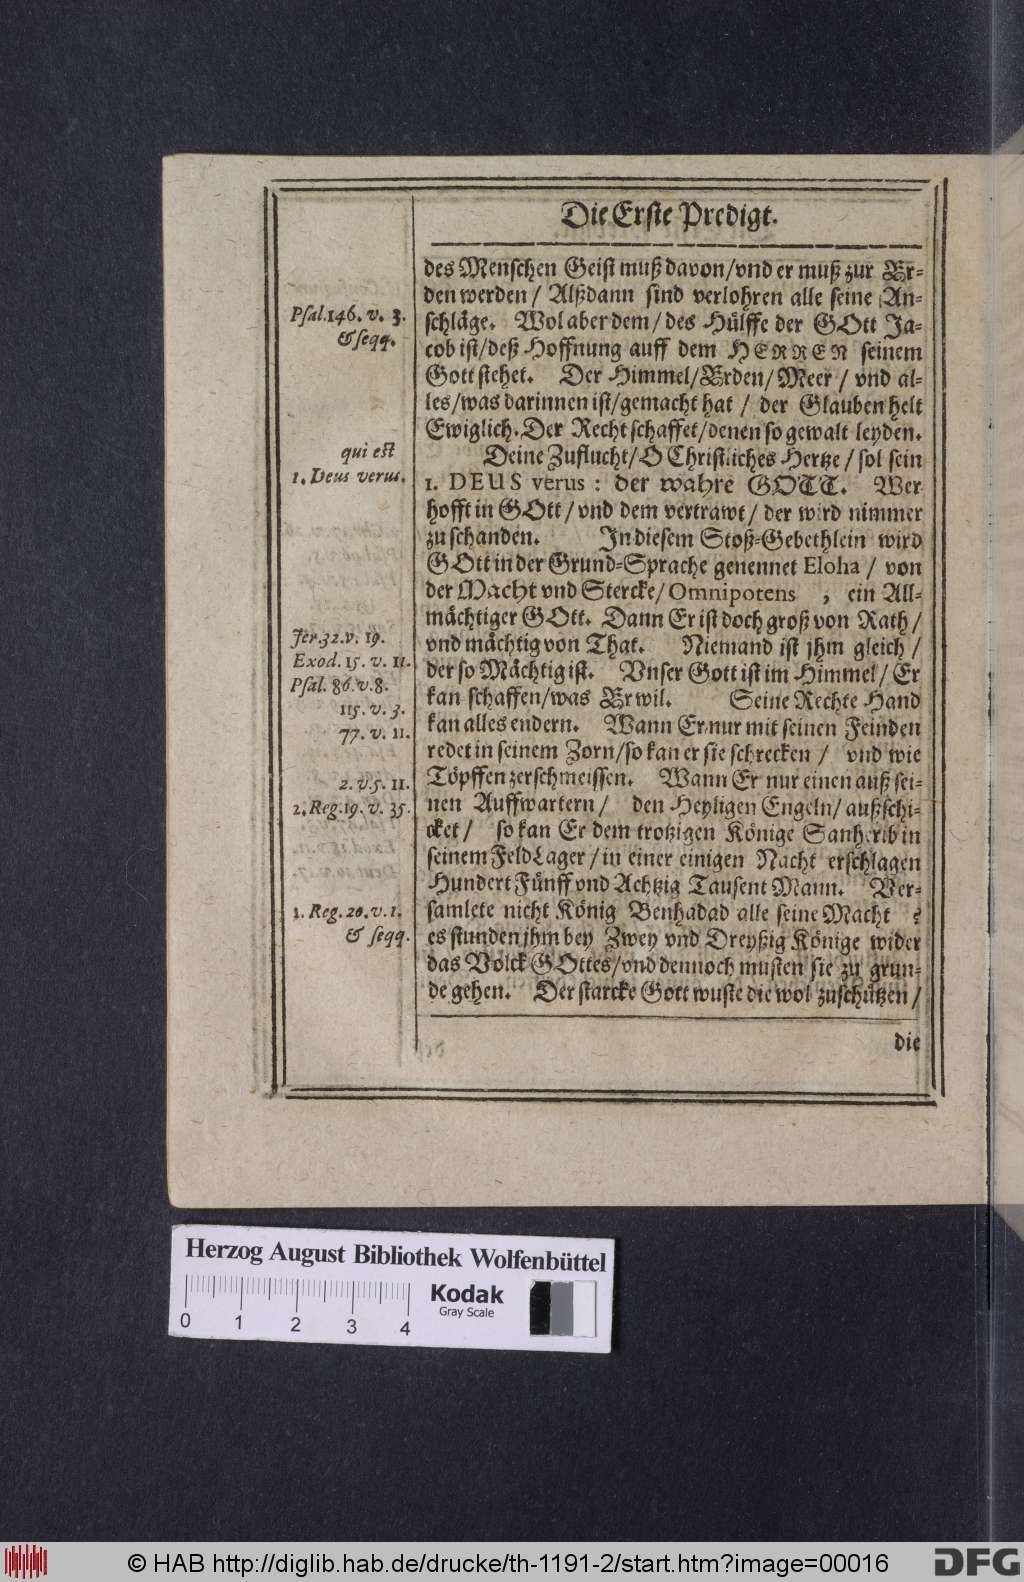 Die Erste Predigt.
des Menschen Geist muß davon/vnd er muß zur Er-
den werden / Alßdann sind verlohren alle seine An-
schläge. Wol aber dem / des Hülffe der GOtt Ja-
cob ist/deß Hoffnung auff dem HERREN seinem
Gott stehet. Der Himmel/Erden/Meer / vnd al-
les/was darinnen ist/gemacht hat / der Glauben helt
Ewiglich. Der Recht schaffet/denen so gewalt leyden.
Deine Zuflucht/O Christliches Hertze / sol sein
1. DEUS verus : der wahre GOTT. Wer
hofft in GOtt/vnd dem vertrawt/ der wird nimmer
zu schanden. In diesem Stoß-Gebethlein wird
GOtt in der Grund-Sprache genennet Eloha / von
der Macht vnd Stercke/Omnipotens , ein All-
mächtiger GOtt. Dann Er ist doch groß von Rath /
vnd mächtig von That. Niemand ist jhm gleich /
der so Mächtig ist. Vnser Gott ist im Himmel/ Er
kan schaffen/was Er wil. Seine Rechte Hand
kan alles endern. Wann Er nur mit seinen Feinden
redet in seinem Zorn/so kan er sie schrecken / vnd wie
Töpffen zerschmeissen. Wann Er nur einen auß sei-
nen Auffwartern / den Heyligen Engeln/ außschi-
cket / so kan Er dem trotzigen Könige Sanherib in
seinem FeldLager / in einer einigen Nacht erschlagen
Hundert Fünff vnd Achtzig Tausent Mann. Ver-
samlete nicht König Benhadad alle seine Macht ?
es stunden jhm bey Zwey vnd Dreyßig Könige wider
das Volck GOttes/vnd dennoch musten sie zu grun-
de gehen. Der starcke Gott wuste die wol zuschützen /
die
Psal. 146. v. 3.
& seqq.
qui est
1. Deus verus.
Jer. 32. v. 19.
Exod. 15. v. 11.
Psal. 86. v. 8.
115. v. 3.
77. v. 11.
2. v. 5. 11.
2. Reg. 19. v. 35.
1. Reg. 20. v. 1.
& seqq.
Herzog August Bibliothek Wolfenbüttel
0 1 2 3 4
Kodak
Gray Scale
© HAB http://diglib.hab.de/drucke/th-1191-2/start.htm?image=00016
DFG